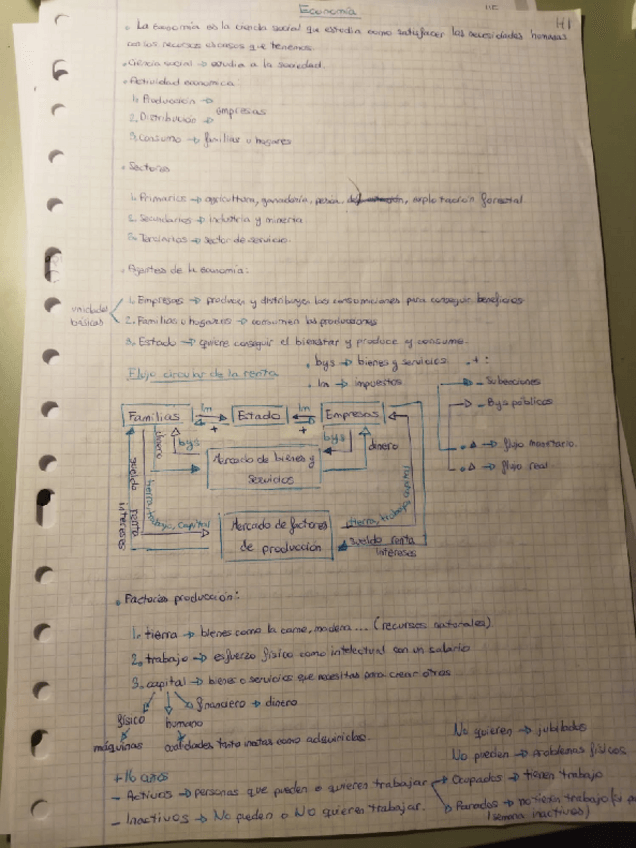 Economía
H1
• La Economía es la ciencia social que estudia como satisfacer las necesidades humanas
con los recursos escasos que tenemos.
• Ciencia social → estudia a la sociedad.
• Actividad económica.
1. Producción →
empresas
2. Distribución →
3. Consumo → familias u hogares
• Sectores
1. Primarios → agricultura, ganadería, pesca, explotación forestal.
2. Secundarios → industria y minería
3. Terciarios → sector de servicio.
• Agentes de la economía:
unidades básicas
1. Empresas → producen y distribuyen las consumiciones para conseguir beneficios
2. Familias u hogares → consumen las producciones
3. Estado → quiere conseguir el bienestar y produce y consume.
Flujo circular de la renta
• bys → bienes y servicios • + :
• Im → impuestos
- Subvenciones
- Bys públicos
• → flujo monetario.
• → flujo real
Familias Im + Estado Im + Empresas
dinero bys bys dinero
Mercado de bienes y
Servicios
sueldo renta intereses
tierra, trabajo, capital
Mercado de factores
de producción
tierra, trabajo, capital
sueldo renta
intereses
• Factores producción:
1. tierra → bienes como la carne, madera... (recursos naturales)
2. trabajo → esfuerzo físico como intelectual con un salario
3. capital → bienes o servicios que necesitas para crear otros
físico humano financiero → dinero
máquinas cualidades tanto innatas como adquiridas.
No quieren → jubilados
No pueden → problemas físicos
+16 años
- Activos → personas que pueden o quieren trabajar → Ocupados → tienen trabajo
→ Parados → no tienen trabajo
- Inactivos → No pueden o No quieren trabajar.
semana inactivos)